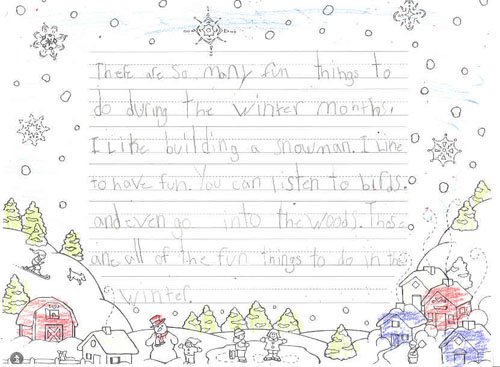 There are so many fun things to
do during the winter months.
I Like building a snowman. I Like
to have fun. You can listen to birds.
and even go into the woods. Those
are all of the fun things to do in the
winter.